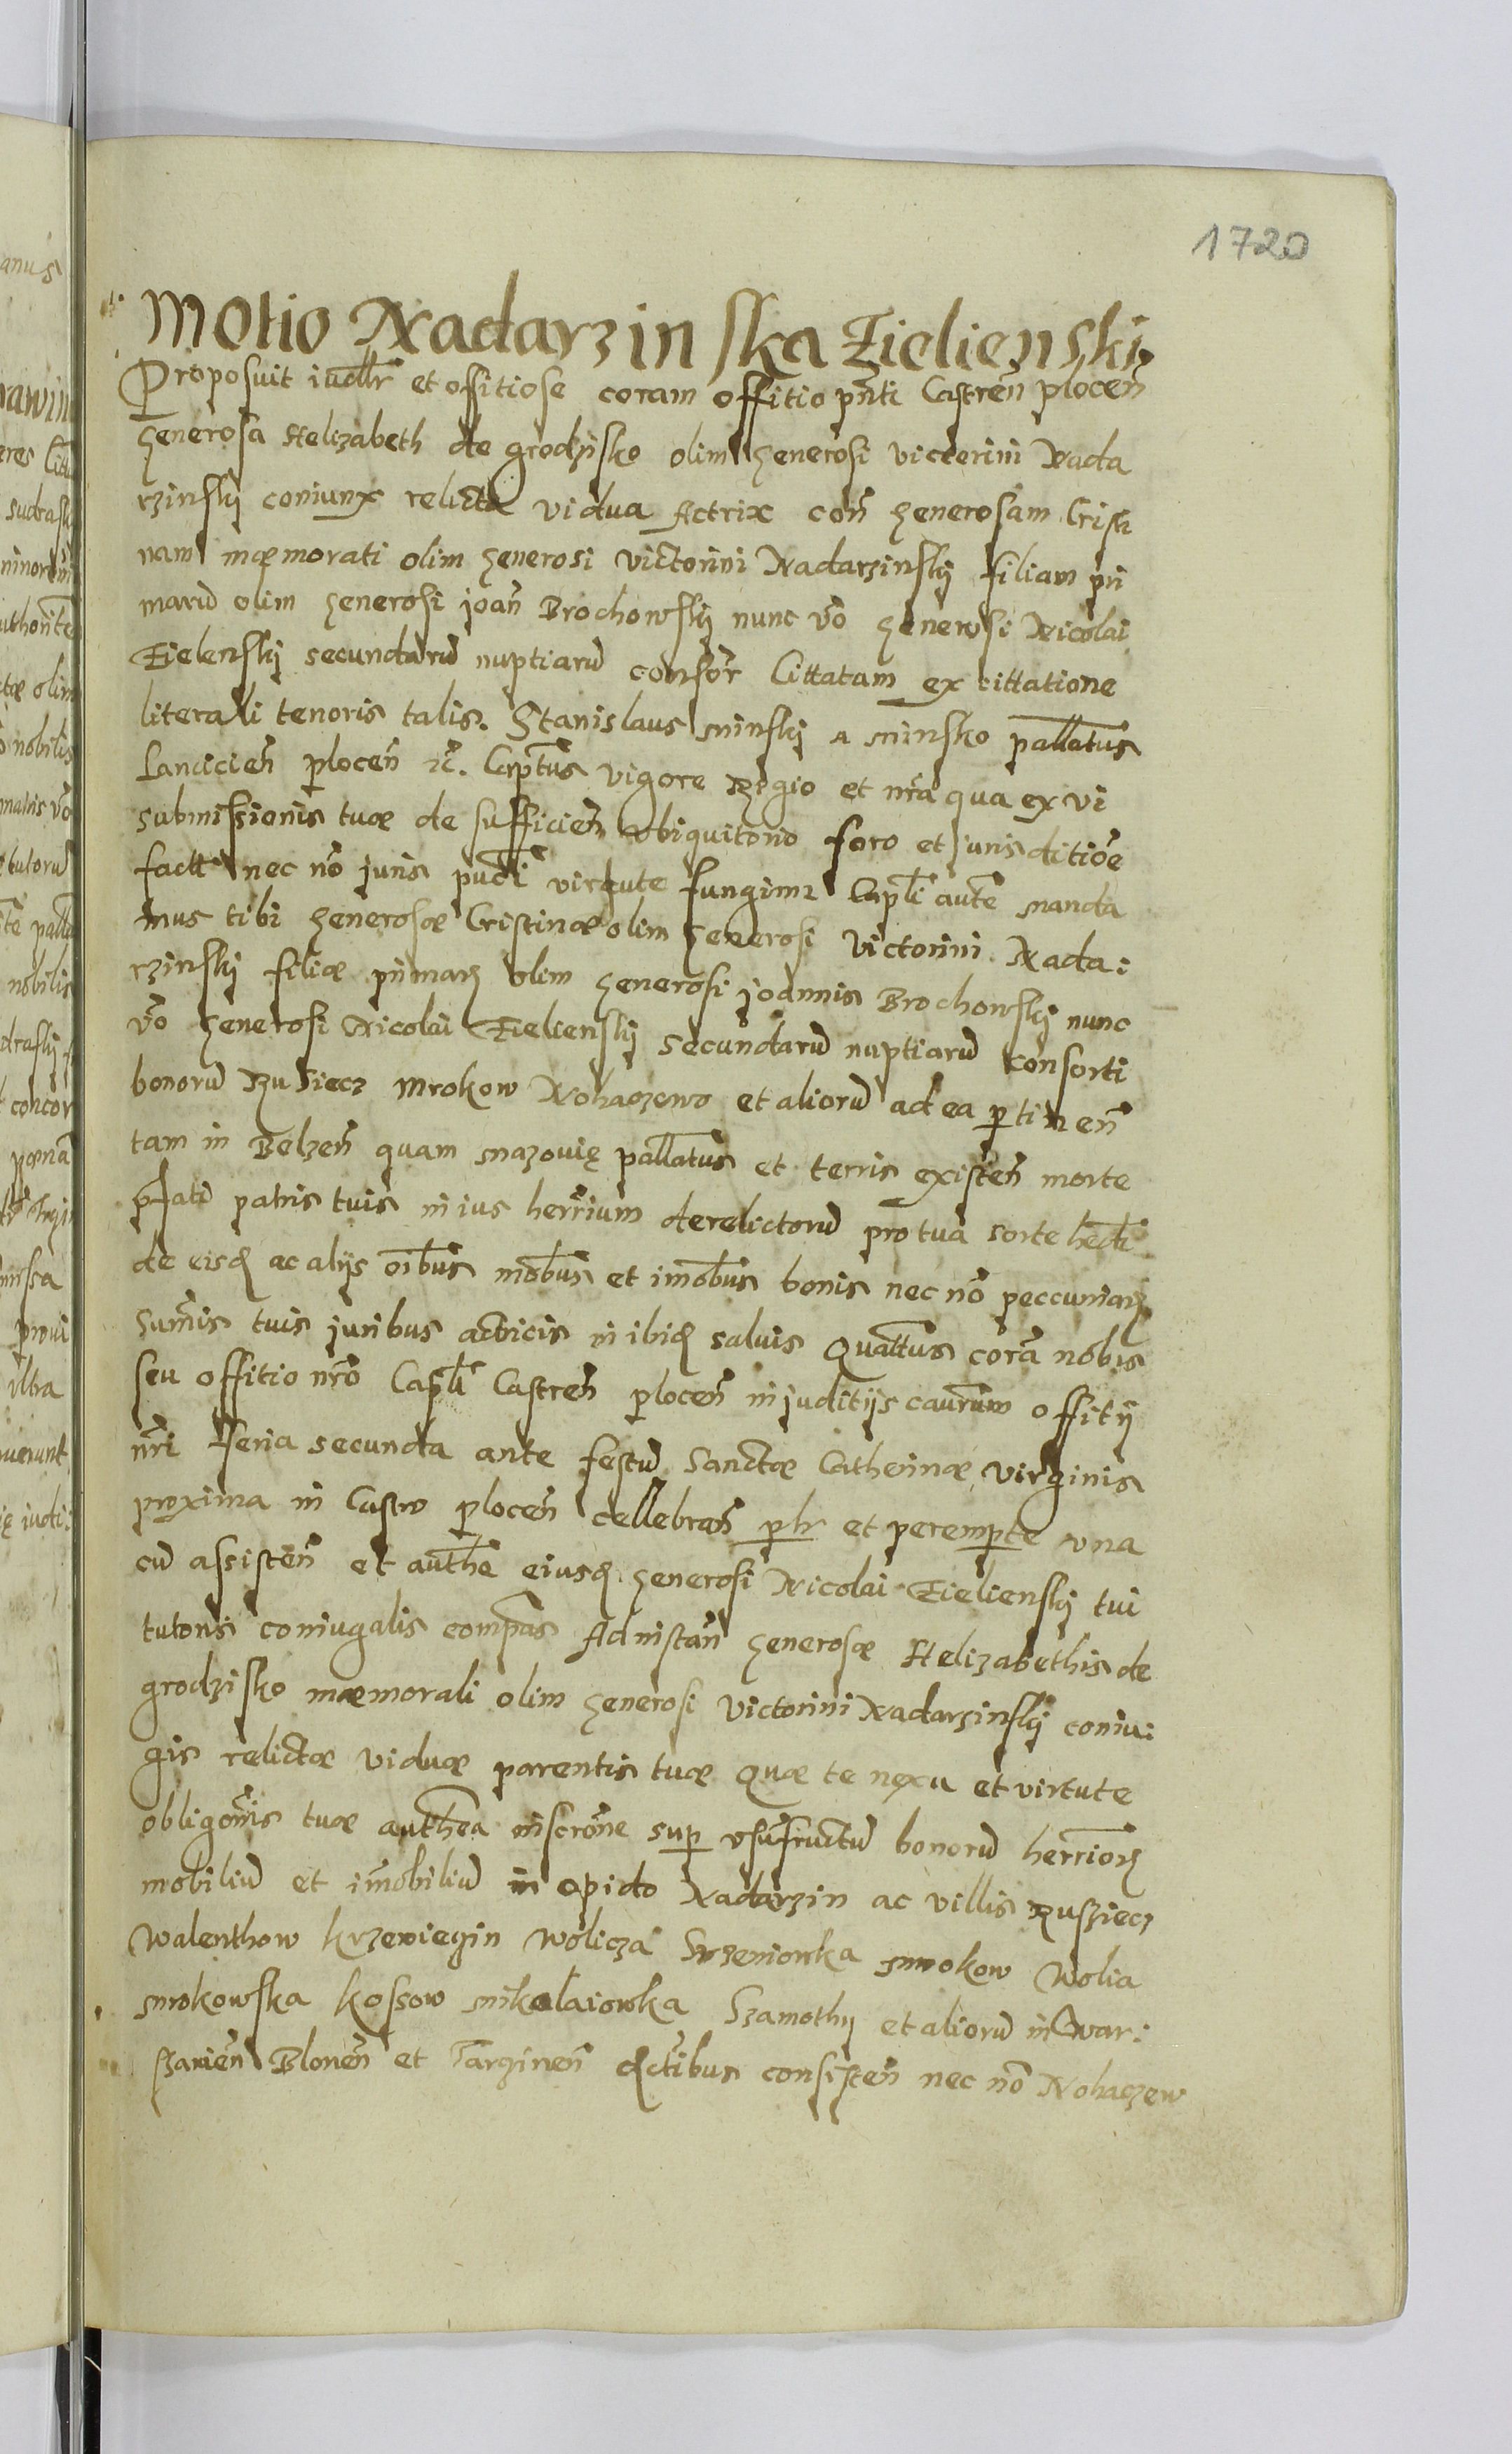 1720
Motio Nadarzinska Zielienski
Proposuit iudlr et offitiose coram offitio pnti Castren plocen
Generosa Helizabeth de grodzisko olim Generosi victorini Nada
rzinskij coniunx relicta vidua Actrix con Generosam Cristi
nam mæmorati olim Generosi victorini Nadarzinskij filiam pri
maru olim Generosi joan Brochowskij nunc vo Generosi Nicolai
Zielenskij secundaru nuptiaru consor Cittatam ex cittatione
literali tenoris talis. Stanislaus Minskj a Minsko pallatus
Lancicien plocen zc. Captus vigore Regio et nra qua ex vi
submissionis tuæ de sufficien ubiquitorio foro et jurisditioe
fact nec no juris pudi virtute fungimr Capli aute manda
mus tibi Generosæ Cristinæ olim Generosi Victorini Nada:
rzinskj filiæ primarz olim Generosi joannis Brochowskij nunc
vo Generosi Nicolai Zielienskij secundaru nuptiaru consorti
bonoru Rusiecz Mrokow Rohaczewo et alioru ad ea ptinen
tam in Belzen quam Mazovię pallatus et terris existen morte
pfati patris tuis in ius herrium derelictoru pro tua sorte hedi
de eisd ac alijs oibus mobus et imobus bonis nec no peccuniarz
sumis tuis juribus actricis in ibid salvis Quattus cora nobis
seu offitio nro Capli Castren plocen in juditijs caurum offitij
nri feria secunda ante festu Sanctæ Catherinæ virginis
proxima in Castro plocen cellebran plr et perempte una
cu assisten et authe eiusd Generosi Nicolai Zielienskij tui
tutoris coniugalis compas Ad instan Generosæ Helizabethis de
grodzisko mæmorali olim Generosi Victorini Nadarzinskij coniu:
gis relictæ viduæ parentis tuæ Quæ te nexu et virtute
obligonis tuæ authea inscrone sup usufructu bonoru herriorz
mobiliu et imobiliu in opido Nadarzin ac villis Rusziecz
Walenthow krzeniegin wolicza Strzeniowka Mrokow Wolia
Mrokowska kossow Mikolaiowka Szamothy et alioru in War:
ssavien Blonen et Tarzinen dctibus consisten nec no Rohaczew